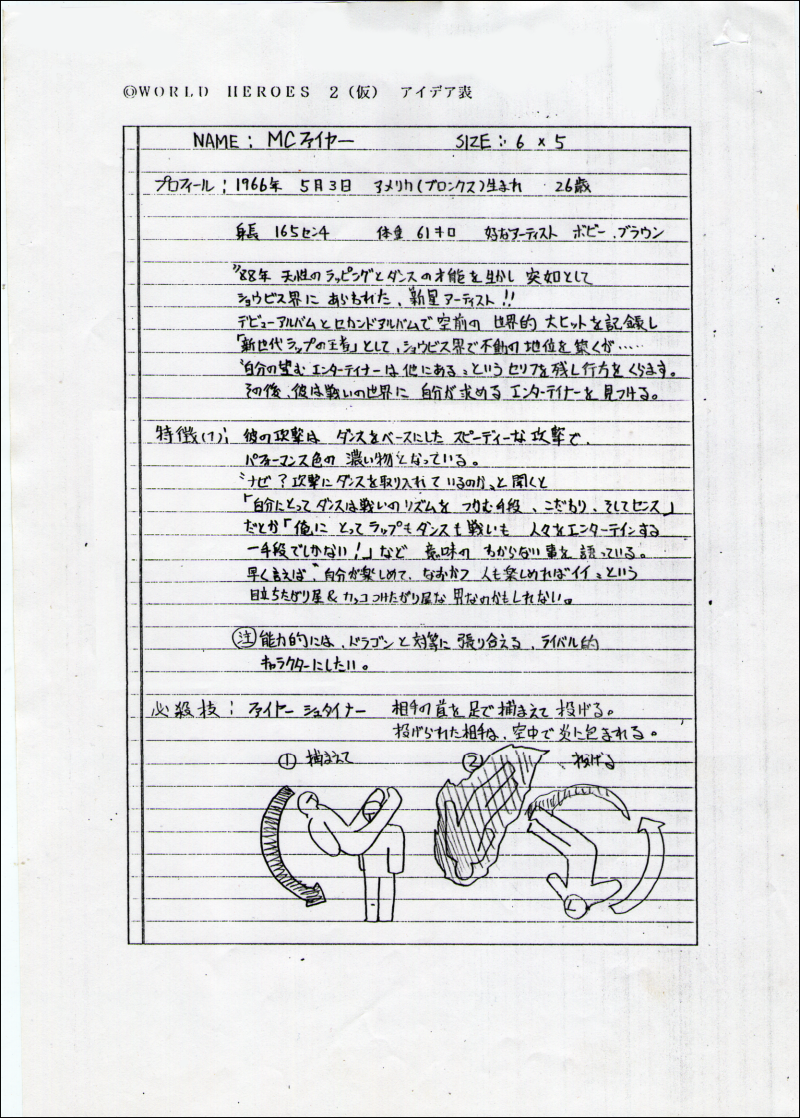 ◎WORLD HEROES 2(仮) アイデア表
NAME: MCファイヤー SIZE: 6 x 5
プロフィール: 1966年 5月3日 アメリカ(ブロンクス)生まれ 26歳
身長 165センチ 体重 61キロ 好きなアーティスト ボビー.ブラウン
'88年 天性のラッピングとダンスの才能を生かし 突如として
ショウビズ界に あらわれた、新星アーティスト!!
デビューアルバムとセカンドアルバムで空前の 世界的 大ヒットを記録し
「新世代ラップの王者」として、ショウビズ界で不動の地位を築くが‥‥
"自分の望む エンターテイナーは他にある〟というセリフを残し行方をくらます。
その後、彼は戦いの世界に 自分が求める エンターテイナーを見つける。
特徴(1): 彼の攻撃は ダンスをベースにした スピーディーな攻撃で、
パフォーマンス色の 濃い物となっている。
"ナゼ?攻撃にダンスを取り入れているのか〟と聞くと
「自分にとってダンスは戦いのリズムを つかむ手段、こだわり、そしてセンス」
だとか「俺に とってラップもダンスも戦いも 人々をエンターテインする
一手段でしかない!」など 意味の わからない事を語っている。
早く言えば"自分が楽しめて、なおかつ人も楽しめればイイ〟という
目立ちたがり屋&カッコつけたがり屋な男なのかもしれない。
注 能力的には、ドラゴンと対等に張り合える、ライバル的
キャラクターにしたい。
必殺技: ファイヤーシュタイナー 相手の首を足で捕まえて投げる。
投げられた相手は、空中で炎に包まれる。
① 捕まえて ② 、投げる